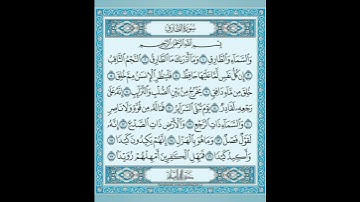 سُورَةُ الطَّارِقِ
بِسْمِ اللَّهِ الرَّحْمَٰنِ الرَّحِيمِ
وَالسَّمَاءِ وَالطَّارِقِ ۝١ وَمَا أَدْرَاكَ مَا الطَّارِقُ ۝٢ النَّجْمُ الثَّاقِبُ
۝٣ إِن كُلُّ نَفْسٍ لَّمَّا عَلَيْهَا حَافِظٌ ۝٤ فَلْيَنظُرِ الْإِنسَانُ مِمَّ خُلِقَ ۝٥
خُلِقَ مِن مَّاءٍ دَافِقٍ ۝٦ يَخْرُجُ مِن بَيْنِ الصُّلْبِ وَالتَّرَائِبِ ۝٧ إِنَّهُ عَلَىٰ
رَجْعِهِ لَقَادِرٌ ۝٨ يَوْمَ تُبْلَى السَّرَائِرُ ۝٩ فَمَا لَهُ مِن قُوَّةٍ وَلَا نَاصِرٍ
۝١٠ وَالسَّمَاءِ ذَاتِ الرَّجْعِ ۝١١ وَالْأَرْضِ ذَاتِ الصَّدْعِ ۝١٢ إِنَّهُ
لَقَوْلٌ فَصْلٌ ۝١٣ وَمَا هُوَ بِالْهَزْلِ ۝١٤ إِنَّهُمْ يَكِيدُونَ كَيْدًا ۝١٥
وَأَكِيدُ كَيْدًا ۝١٦ فَمَهِّلِ الْكَافِرِينَ أَمْهِلْهُمْ رُوَيْدًا ۝١٧